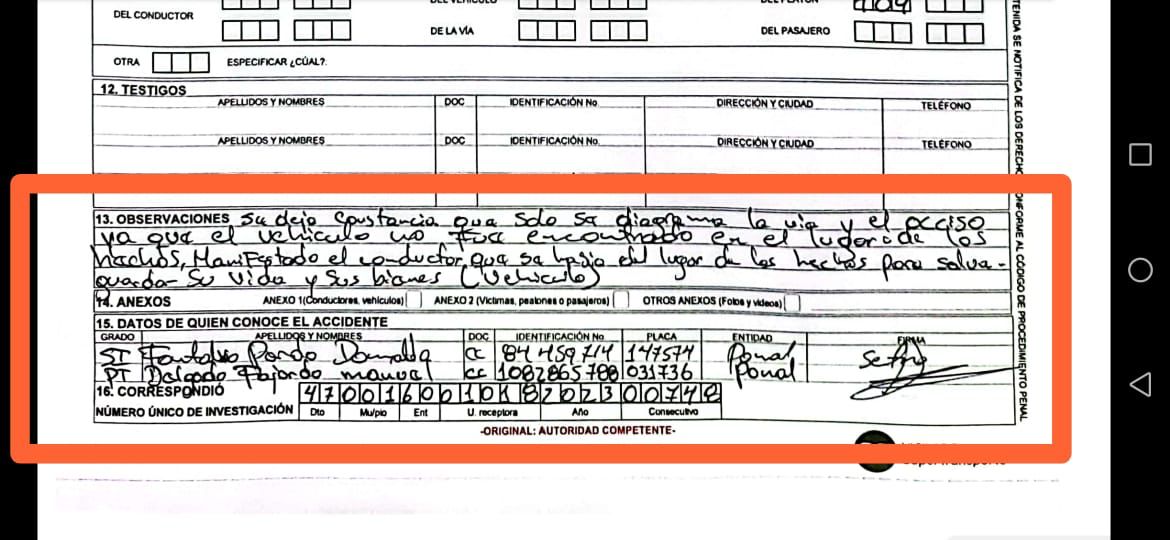 DEL CONDUCTOR
DE LA VÍA
DEL PASAJERO
OTRA ESPECIFICAR ¿CÚAL?.
12. TESTIGOS
APELLIDOS Y NOMBRES DOC IDENTIFICACIÓN No DIRECCIÓN Y CIUDAD TELÉFONO
APELLIDOS Y NOMBRES DOC IDENTIFICACIÓN No. DIRECCIÓN Y CIUDAD TELÉFONO
13. OBSERVACIONES Se deja constancia que solo se diagrama la via y el occiso
ya que el vehiculo no fue encontrado en el lugar de los
hechos, Manifestado el conductor que se bajo del lugar de los hechos para salva-
guardar su vida y sus bienes (Vehiculo)
14. ANEXOS ANEXO 1(Conductores, vehículos) ANEXO 2 (Víctimas, peatones o pasajeros) OTROS ANEXOS (Fotos y videos)
15. DATOS DE QUIEN CONOCE EL ACCIDENTE
GRADO APELLIDOS Y NOMBRES DOC IDENTIFICACIÓN No PLACA ENTIDAD FIRMA
ST Pardo CC 84459714 147574 Ponal
PT Delgado Fajardo manuel CC 1082865788 031736 Ponal
16. CORRESPONDIÓ 470016001018202300748
NÚMERO ÚNICO DE INVESTIGACIÓN Dto Mu/pio Ent U. receptora Año Consecutivo
-ORIGINAL: AUTORIDAD COMPETENTE-
TENIDA SE NOTIFICA DE LOS DERECHO CONFORME AL CÓDIGO DE PROCEDIMIENTO PENAL